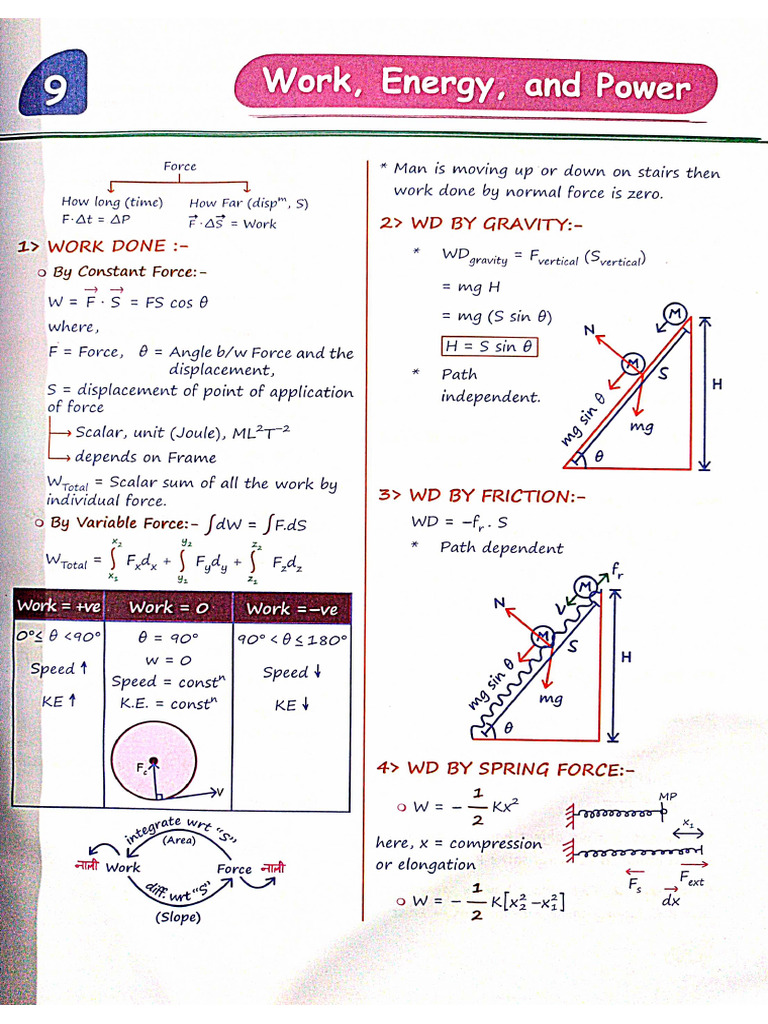 9
Work, Energy, and Power
Force
How long (time)
F·Δt = ΔP
How Far (dispᵐ, S)
F⃗·ΔS⃗ = Work
1> WORK DONE :-
By Constant Force:-
W = F⃗ · S⃗ = FS cos θ
where,
F = Force, θ = Angle b/w Force and the
displacement,
S = displacement of point of application
of force
Scalar, unit (Joule), ML²T⁻²
depends on Frame
W_Total = Scalar sum of all the work by
individual force.
By Variable Force:- ∫dW = ∫F.dS
W_Total = ∫_{x₁}^{x₂} F_xd_x + ∫_{y₁}^{y₂} F_yd_y + ∫_{z₁}^{z₂} F_zd_z
Work = +ve
0°≤ θ <90°
Speed ↑
KE ↑
Work = 0
θ = 90°
w = 0
Speed = constⁿ
K.E. = constⁿ
F_c
V
Work =–ve
90° < θ ≤ 180°
Speed ↓
KE ↓
integrate wrt "S"
(Area)
नाली Work
Force नाली
diff. wrt "S"
(Slope)
* Man is moving up or down on stairs then
work done by normal force is zero.
2> WD BY GRAVITY:-
* WD_gravity = F_vertical (S_vertical)
= mg H
= mg (S sin θ)
H = S sin θ
* Path
independent.
M
N
M
S
H
mg sin θ
mg
θ
3> WD BY FRICTION:-
WD = –f_r . S
* Path dependent
f_r
M
N
M
S
H
mg sin θ
mg
θ
4> WD BY SPRING FORCE:-
W = – 1/2 Kx²
here, x = compression
or elongation
W = – 1/2 K[x₂² –x₁²]
MP
x₁
F_s
F_ext
dx